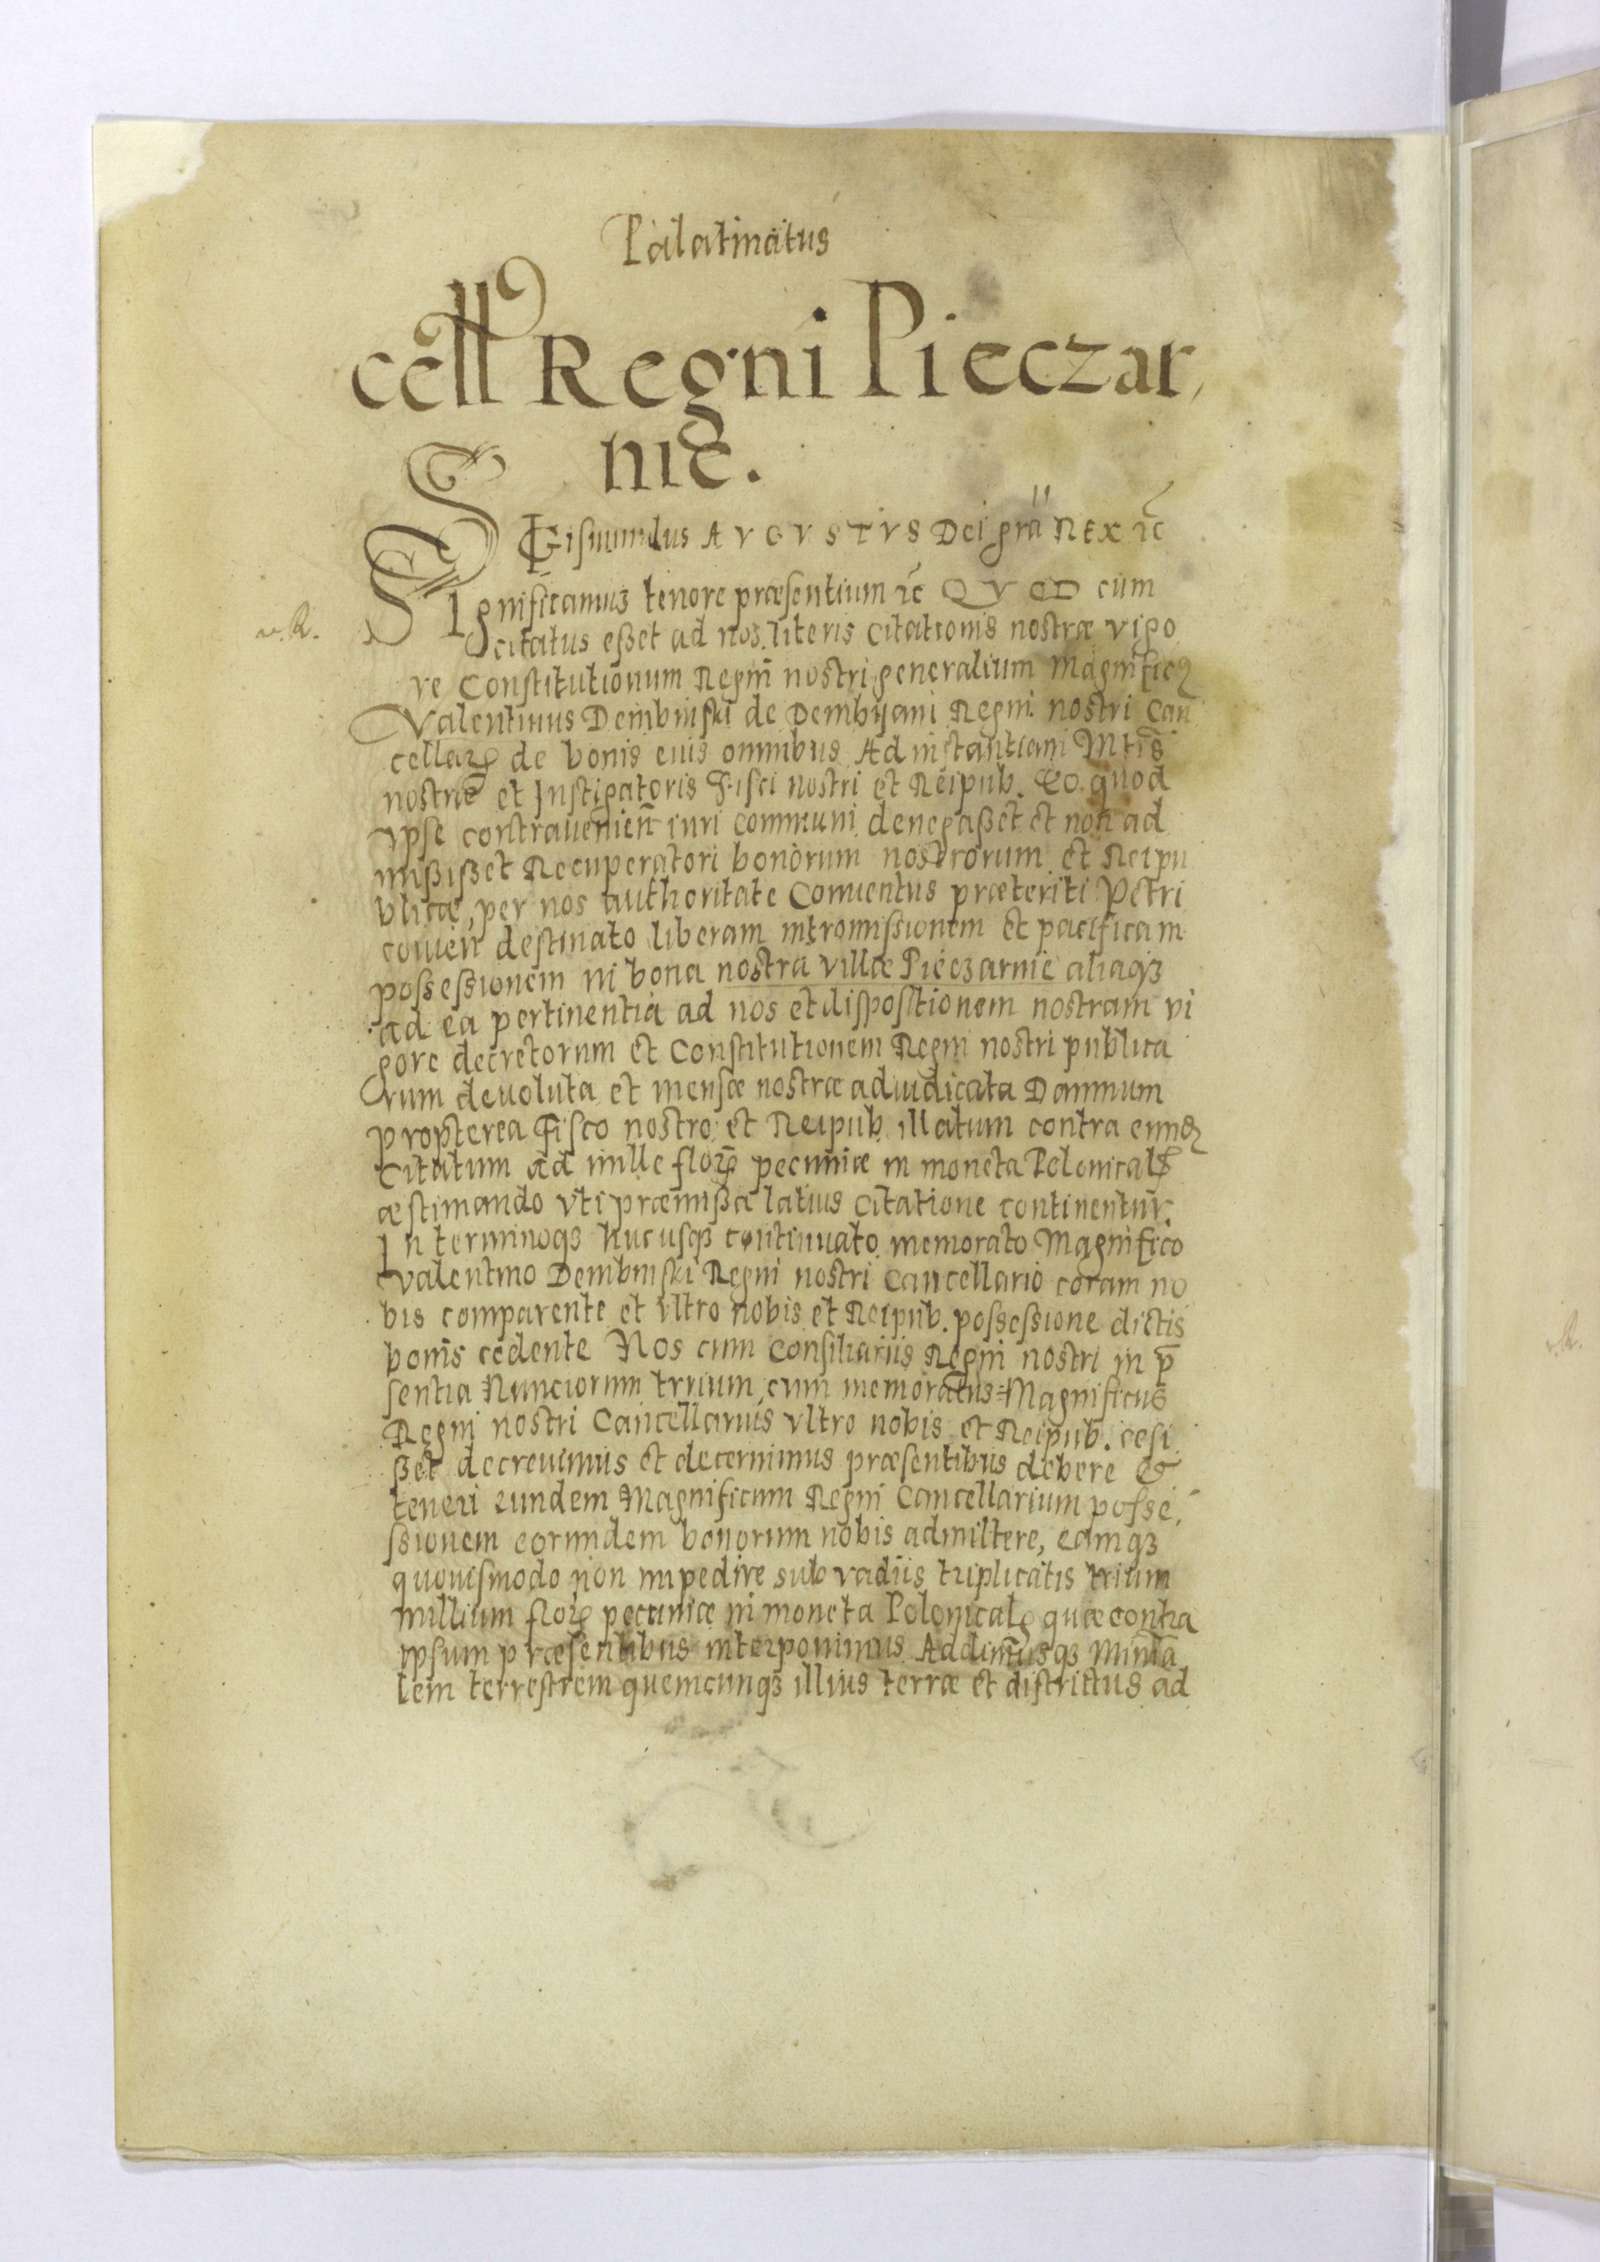 Palatinatus
cell Regni Pieczar,
nie.
SIGismundus AVGVSTVS Dei grã REX ic̃
Significamus tenore præsentium ic̃ QVOD cum
citatus eßet ad nos literis citationis nostræ vigo
re Constitutionum Regni nostri generalium Magnificus
Valentinus Dembinski de Dembijani Regni nostri Can
cellar de bonis eius omnibus Ad instantiam Mtis
nostræ et Instigatoris Fisci nostri et Reipub. Eo quod
ypse contravenien̄ iuri communi denegaßet et non ad
mißißet Recuperatori bonorum nostrorum et Reipu
blicæ, per nos authoritate Conventus præteriti Petri
covien̄ destinato liberam intromissionem et pacificam
possessionem in bona nostra villæ Pieczarnie aliaqꝫ
ad ea pertinentia ad nos et dispositionem nostram vi
gore decretorum et Constitutionem Regni nostri publica
rum devoluta et mensæ nostræ adiudicata Damnum
propterea Fisco nostro et Reipub. illatum contra eund
Citatum ad mille flor pecuniæ in moneta Polonical
æstimando vti præmißa latius Citatione continentur.
In terminoqꝫ hucusqꝫ continuato memorato Magnifico
Valentino Dembinski Regni nostri Cancellario coram no
bis comparente et vltro nobis et Reipub. possessione dictis
bonis cedente Nos cum Consiliariis Regni nostri in p̄
sentia Nunciorum trium cum memoratus Magnificus
Regni nostri Cancellarius vltro nobis et Reipub. cesi
ßet decrevimus et decernimus præsentibus debere &
teneri eundem Magnificum Regni Cancellarium posse,
ssionem eorundem bonorum nobis admittere, eamqꝫ
quovismodo non impedire sub vadiis triplicatis trium
millium flor pecuniæ in moneta Polonical quæ contra
ipsum præsentibus interponimus Addimusqꝫ Minista
lem terrestrem quemcunqꝫ illius terræ et districtus ad